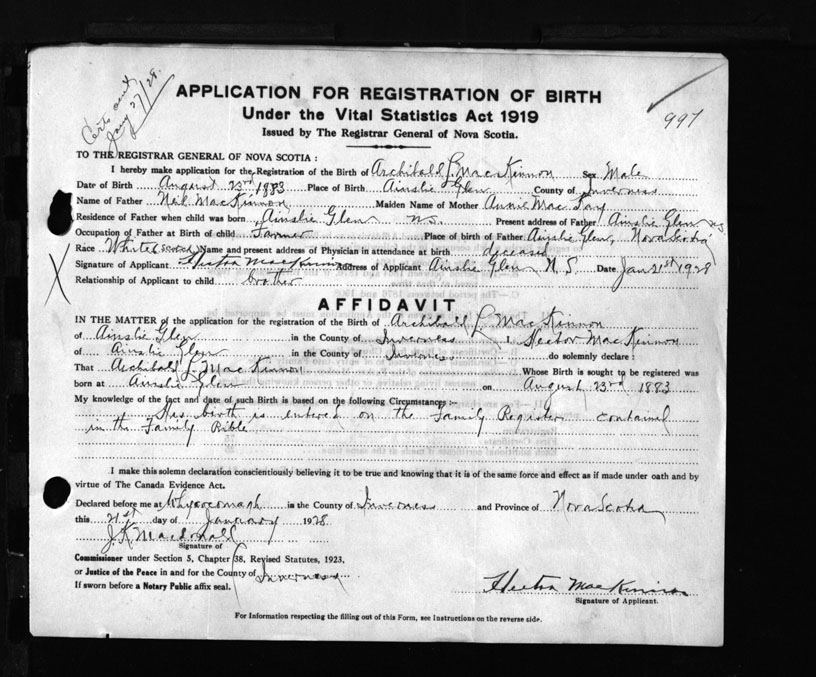 Certs sent
Jany 27/28.
APPLICATION FOR REGISTRATION OF BIRTH
997
Under the Vital Statistics Act 1919
Issued by The Registrar General of Nova Scotia.
TO THE REGISTRAR GENERAL OF NOVA SCOTIA :
I hereby make application for the Registration of the Birth of Archibald L. MacKinnon Sex Male
Date of Birth August 23rd 1883 Place of Birth Ainslie Glen County of Inverness
Name of Father Neil MacKinnon Maiden Name of Mother Annie Mac
Residence of Father when child was born Ainslie Glen N.S. Present address of Father Ainslie Glen NS
Occupation of Father at Birth of child Farmer Place of birth of Father Ainslie Glen, Nova Scotia
Race White (Scotch) Name and present address of Physician in attendance at birth deceased
Signature of Applicant Hector MacKinnon Address of Applicant Ainslie Glen N.S. Date Jan 21st 1928
Relationship of Applicant to child brother
AFFIDAVIT
IN THE MATTER of the application for the registration of the Birth of Archibald L. MacKinnon
of Ainslie Glen in the County of Inverness I Hector MacKinnon
of Ainslie Glen in the County of Inverness do solemnly declare :
That Archibald L. MacKinnon Whose Birth is sought to be registered was
born at Ainslie Glen on August 23rd 1883
My knowledge of the fact and date of such Birth is based on the following Circumstances :-
His birth is entered on the Family Register contained
in the Family Bible
I make this solemn declaration conscientiously believing it to be true and knowing that it is of the same force and effect as if made under oath and by
virtue of The Canada Evidence Act.
Declared before me at Whycocomagh in the County of Inverness and Province of Nova Scotia
this 21st day of January 1928
J. K. Macdonald
Signature of
Commissioner under Section 5, Chapter 38, Revised Statutes, 1923,
or Justice of the Peace in and for the County of Inverness
If sworn before a Notary Public affix seal.
Hector MacKinnon
Signature of Applicant.
For Information respecting the filling out of this Form, see Instructions on the reverse side.